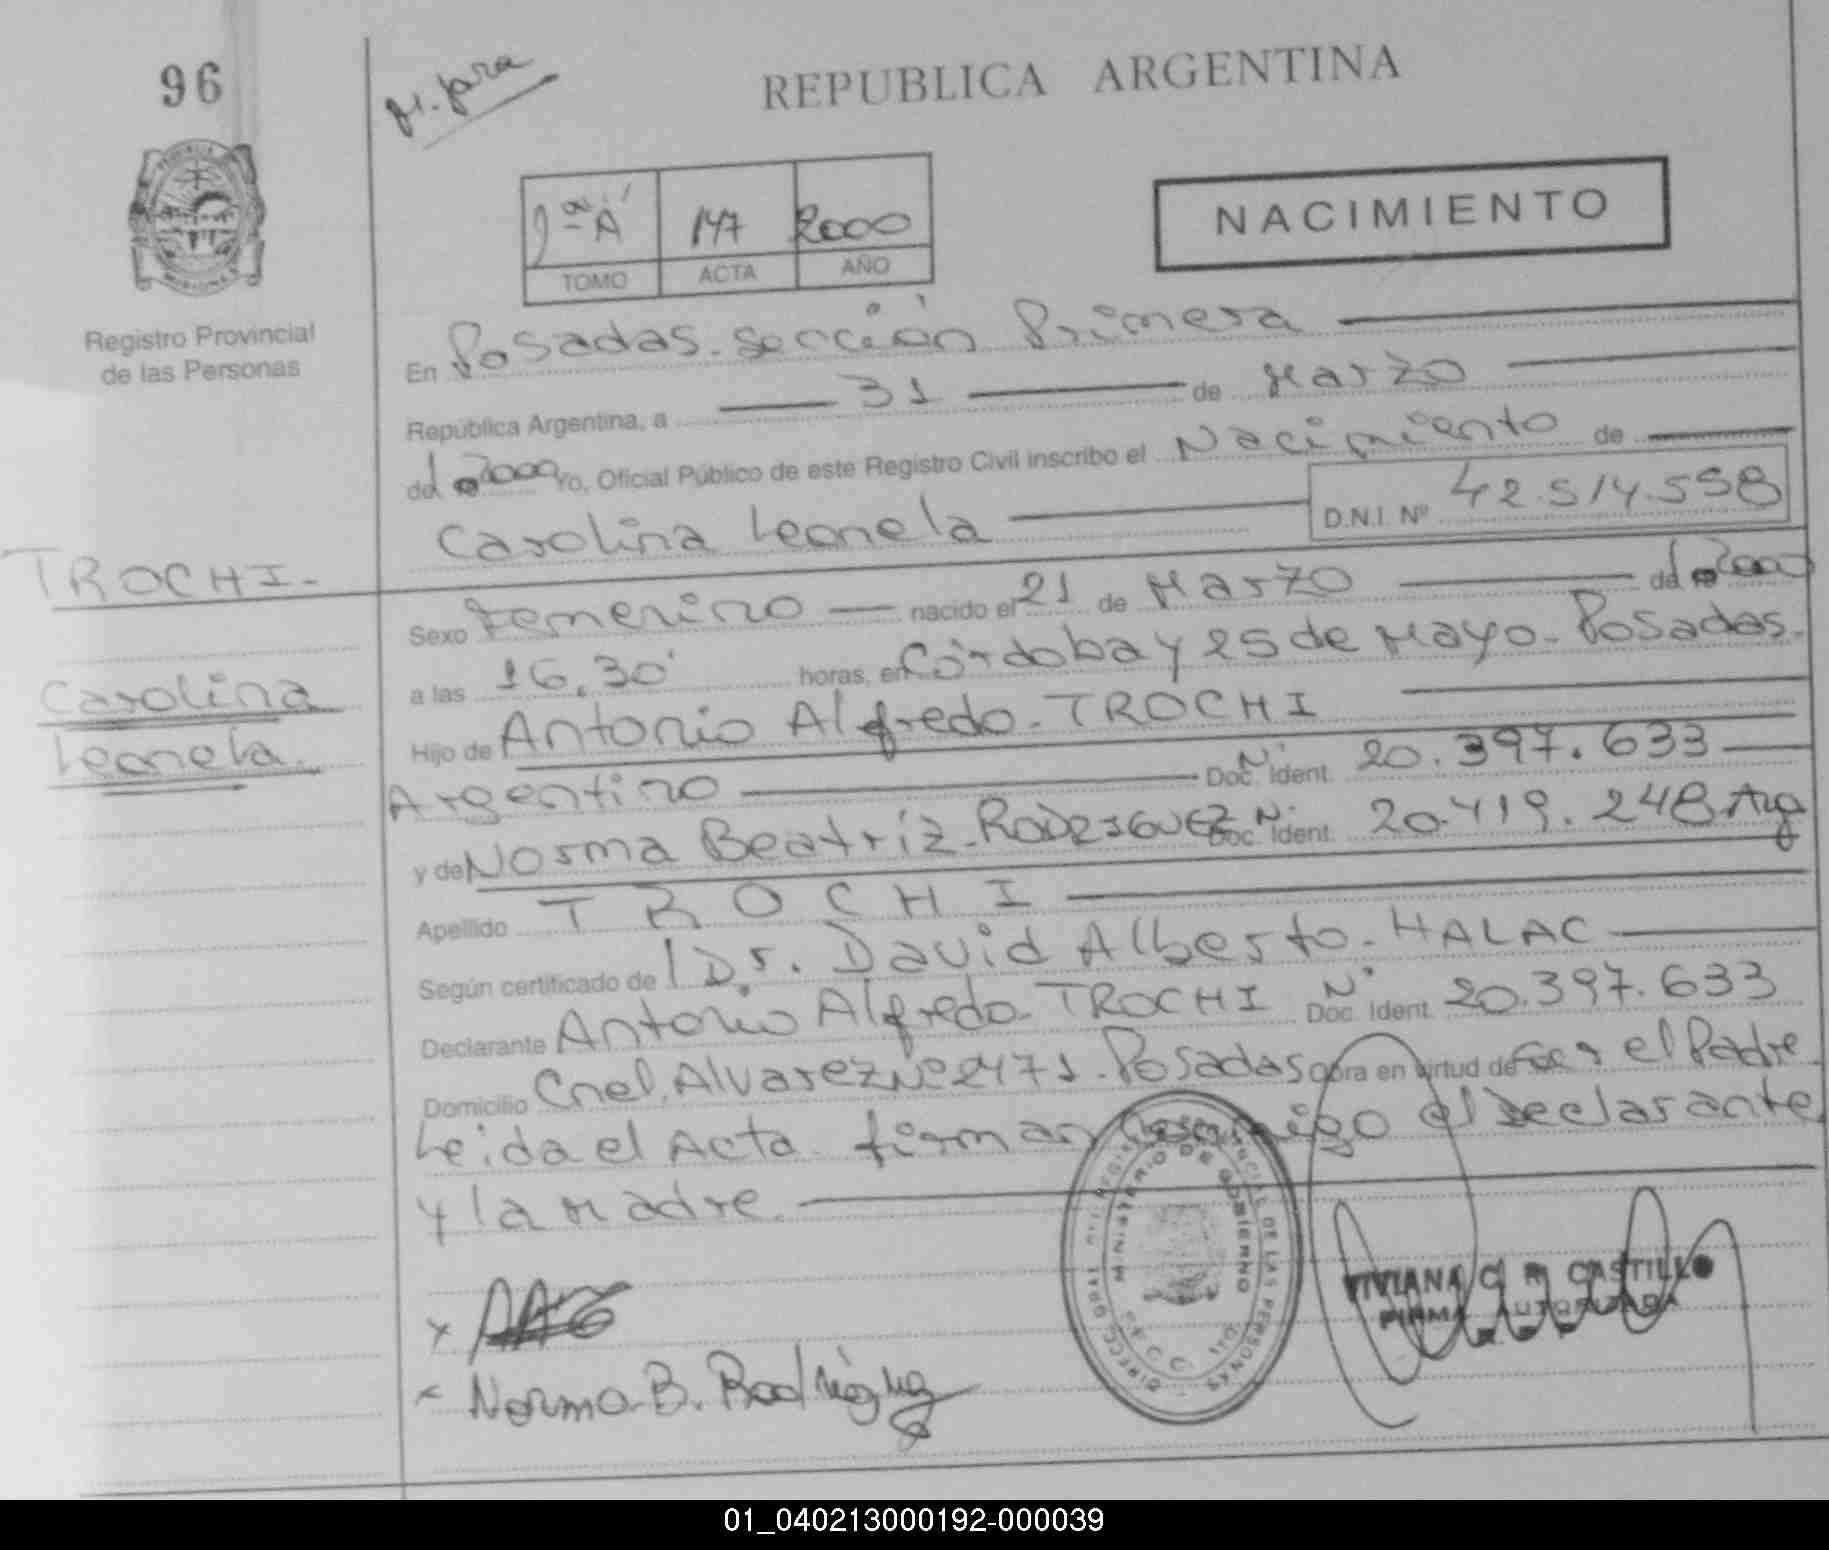 96
REPUBLICA ARGENTINA
NACIMIENTO
147 2000
TOMO ACTA AÑO
Registro Provincial
de las Personas
En Posadas. sección Primera
República Argentina, a 31 de Marzo
del 2000 Yo, Oficial Público de este Registro Civil inscribo el Nacimiento de
Carolina Leonela D.N.I. Nº 42.514.558
TROCHI.
Carolina
Leonela.
Sexo Femenino nacido el 21 de Marzo del 2000
a las 16,30' horas, en Córdoba y 25 de Mayo. Posadas.
Hijo de Antonio Alfredo. TROCHI
Argentino Doc. Ident. Nº 20.397.633
y de Norma Beatriz. RODRIGUEZ Doc. Ident. Nº 20.419.248 Arg
Apellido TROCHI
Según certificado de Dr. David Alberto. HALAC
Declarante Antonio Alfredo. TROCHI Doc. Ident. Nº 20.397.633
Domicilio Cnel. Alvarez Nº 2471. Posadas obra en virtud de Ser el Padre
Leida el Acta. firman conmigo el Declarante
y la Madre.
x
x Norma B. Rodríguez
MINISTERIO DE GOBIERNO
VIVIANA C. R. CASTILLO
FIRMA AUTORIZADA
01_040213000192-000039